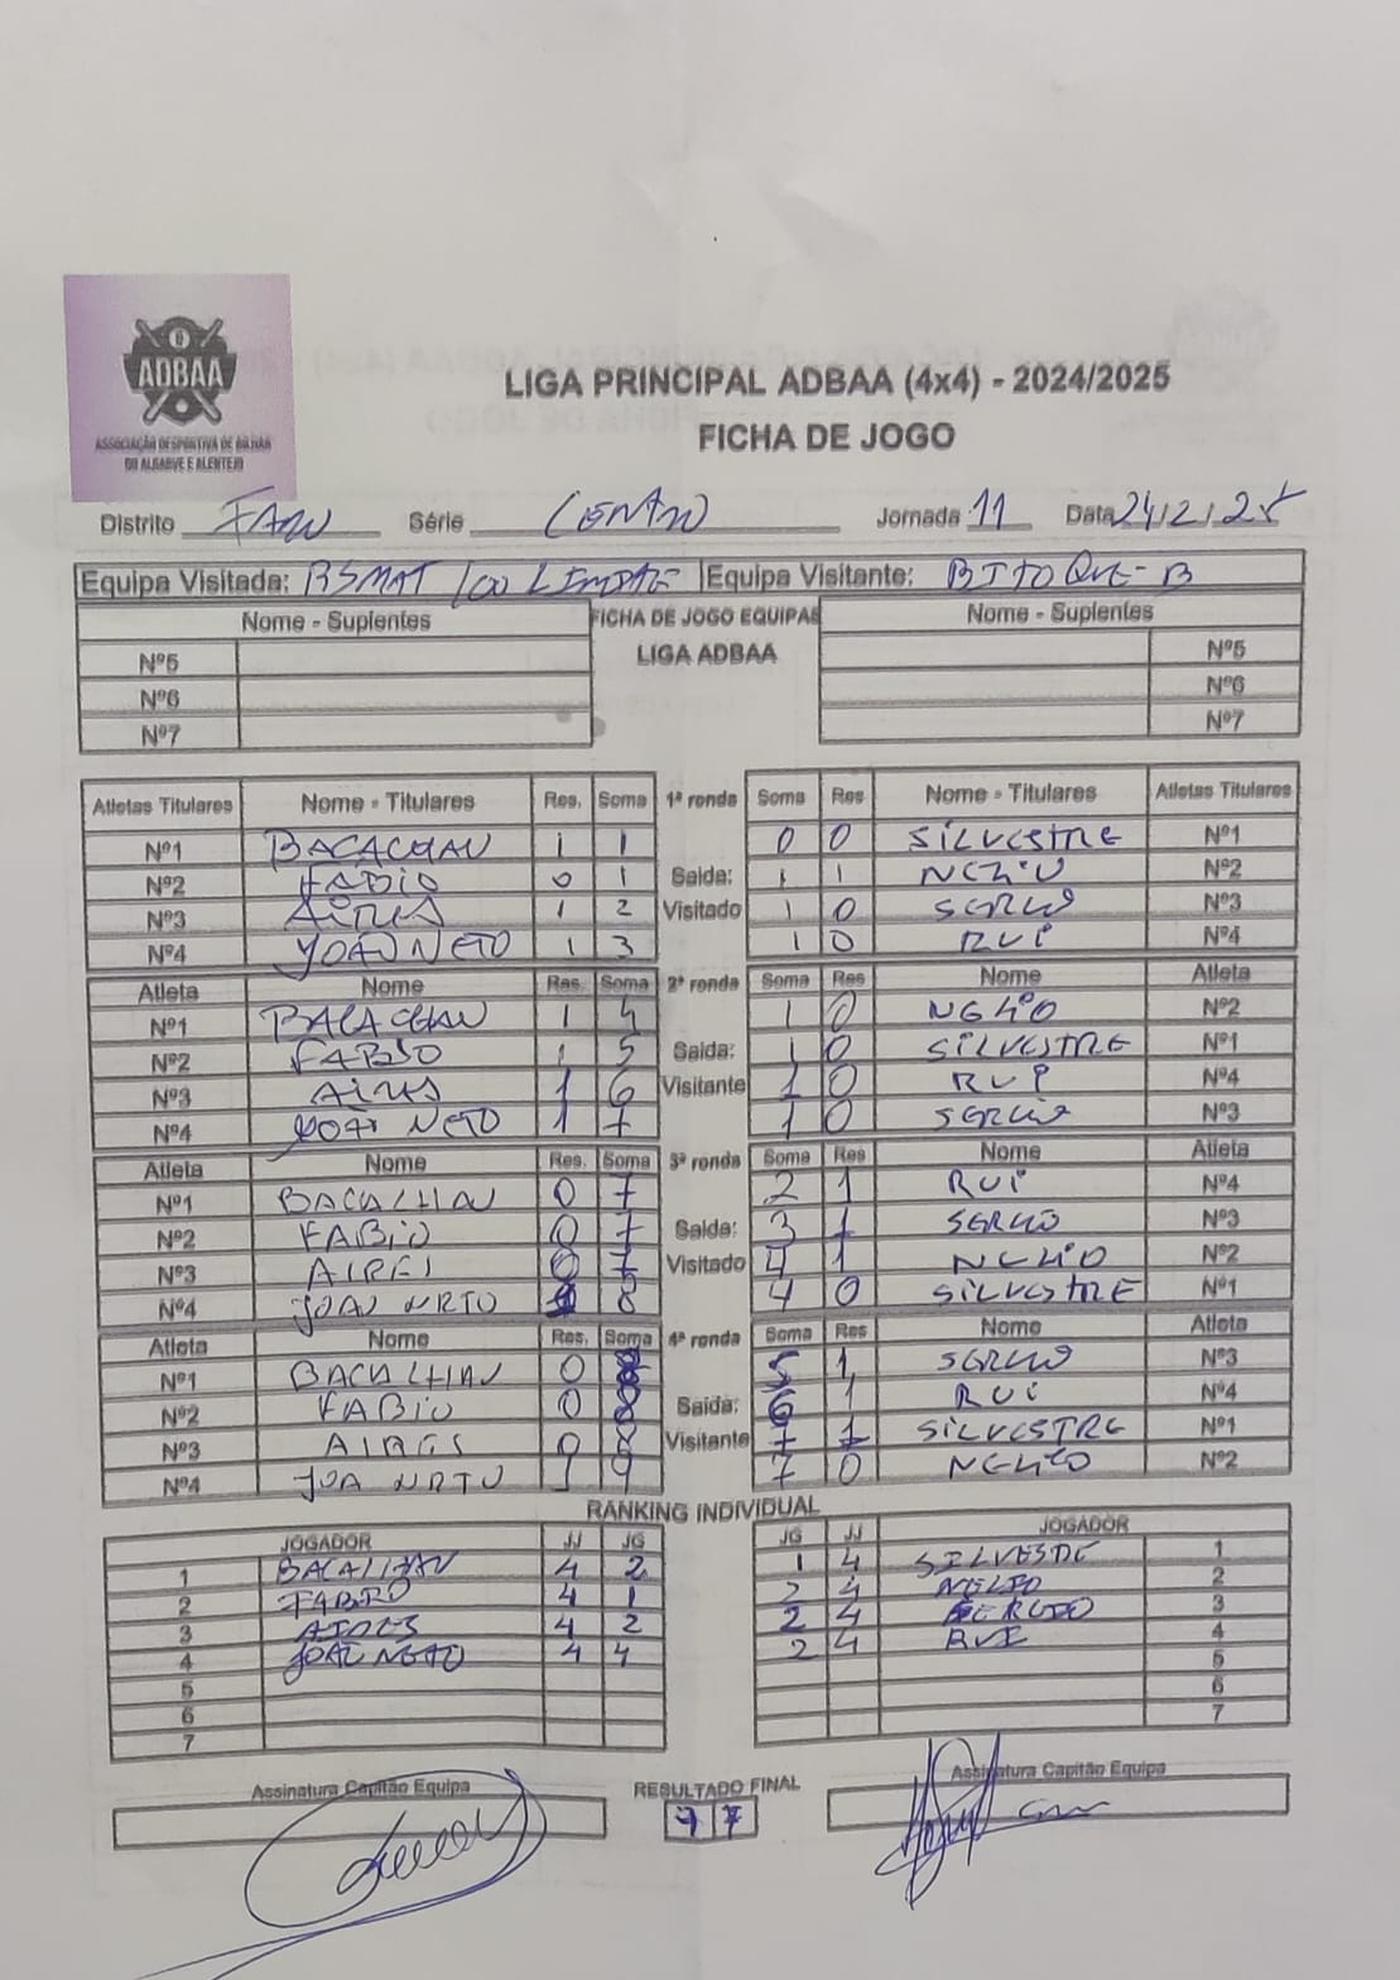 ADBAA
ASSOCIAÇÃO DESPORTIVA DE BILHAR
DO ALGARVE E ALENTEJO
LIGA PRINCIPAL ADBAA (4x4) - 2024/2025
FICHA DE JOGO
Distrito FARO Série CENTRO Jornada 11 Data 24/2/25
Equipa Visitada: BSMAT Equipa Visitante: BITOQUE-B
Nome - Suplentes FICHA DE JOGO EQUIPAS Nome - Suplentes
LIGA ADBAA
Nº5 Nº5
Nº6 Nº6
Nº7 Nº7
Atletas Titulares Nome - Titulares Res. Soma 1ª ronda Soma Res Nome - Titulares Atletas Titulares
Nº1 BACALHAU 1 1 0 0 SILVESTRE Nº1
Nº2 FABIO 0 1 Saida: 1 1 NELIO Nº2
Nº3 AIRES 1 2 Visitado 1 0 SERGIO Nº3
Nº4 JOÃO NETO 1 3 1 0 RUI Nº4
Atleta Nome Res. Soma 2ª ronda Soma Res Nome Atleta
Nº1 BACALHAU 1 4 1 0 NELIO Nº2
Nº2 FABIO 1 5 Saida: 1 0 SILVESTRE Nº1
Nº3 AIRES 1 6 Visitante 1 0 RUI Nº4
Nº4 JOÃO NETO 1 7 1 0 SERGIO Nº3
Atleta Nome Res. Soma 3ª ronda Soma Res Nome Atleta
Nº1 BACALHAU 0 7 2 1 RUI Nº4
Nº2 FABIO 0 7 Saida: 3 1 SERGIO Nº3
Nº3 AIRES 0 7 Visitado 4 1 NELIO Nº2
Nº4 JOAO NETO 1 8 4 0 SILVESTRE Nº1
Atleta Nome Res. Soma 4ª ronda Soma Res Nome Atleta
Nº1 BACALHAU 0 8 5 1 SERGIO Nº3
Nº2 FABIO 0 8 Saida: 6 1 RUI Nº4
Nº3 AIRES 0 8 Visitante 7 1 SILVESTRE Nº1
Nº4 JOA NETO 1 9 7 0 NELIO Nº2
RANKING INDIVIDUAL
JOGADOR JJ JG JG JJ JOGADOR
1 BACALHAU 4 2 1 4 SILVESTRE 1
2 FABIO 4 1 2 4 NELIO 2
3 AIRES 4 2 2 4 SERGIO 3
4 JOAO NETO 4 4 2 4 RUI 4
5 5
6 6
7 7
Assinatura Capitão Equipa RESULTADO FINAL Assinatura Capitão Equipa
9 7